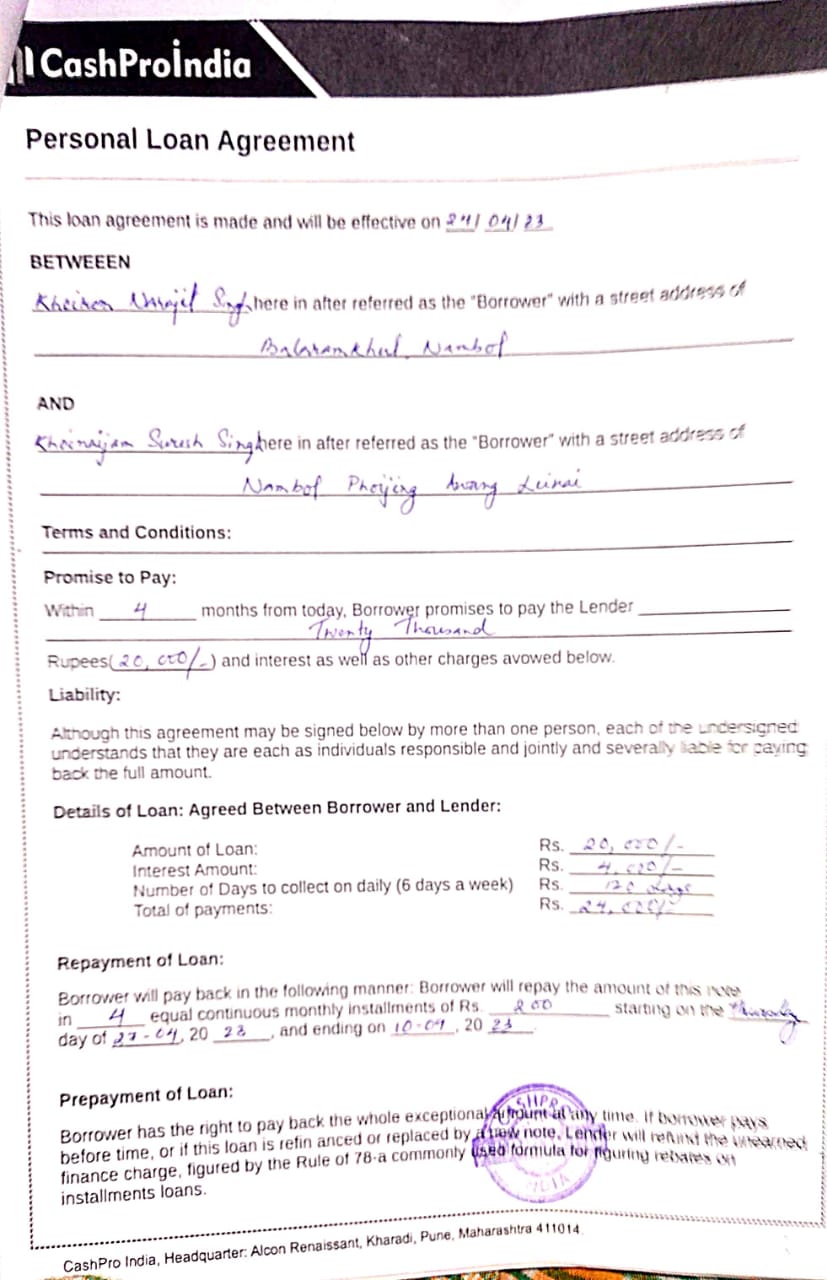 CashProİndia
Personal Loan Agreement
This loan agreement is made and will be effective on 24/ 04/ 23
BETWEEEN
Singh here in after referred as the "Borrower" with a street address of
Nambol
AND
Suresh Singh here in after referred as the "Borrower" with a street address of
Nambol Phoijing Awang Leikai
Terms and Conditions:
Promise to Pay:
Within 4 months from today, Borrower promises to pay the Lender
Twenty Thousand
Rupees( 20,000/- ) and interest as well as other charges avowed below.
Liability:
Although this agreement may be signed below by more than one person, each of the undersigned
understands that they are each as individuals responsible and jointly and severally liable for paying
back the full amount.
Details of Loan: Agreed Between Borrower and Lender:
Amount of Loan: Rs. 20,000/-
Interest Amount: Rs. 4,000/-
Number of Days to collect on daily (6 days a week) Rs. 120 days
Total of payments: Rs. 24,000/-
Repayment of Loan:
Borrower will pay back in the following manner: Borrower will repay the amount of this note
in 4 equal continuous monthly installments of Rs. 200 starting on the Thursday
day of 27-04, 20 23, and ending on 10-09, 20 23.
Prepayment of Loan:
Borrower has the right to pay back the whole exceptional amount at any time. If borrower pays
before time, or if this loan is refin anced or replaced by a new note, Lender will refund the unearned
finance charge, figured by the Rule of 78-a commonly used formula for figuring rebates on
installments loans.
CashPro India, Headquarter: Alcon Renaissant, Kharadi, Pune, Maharashtra 411014.